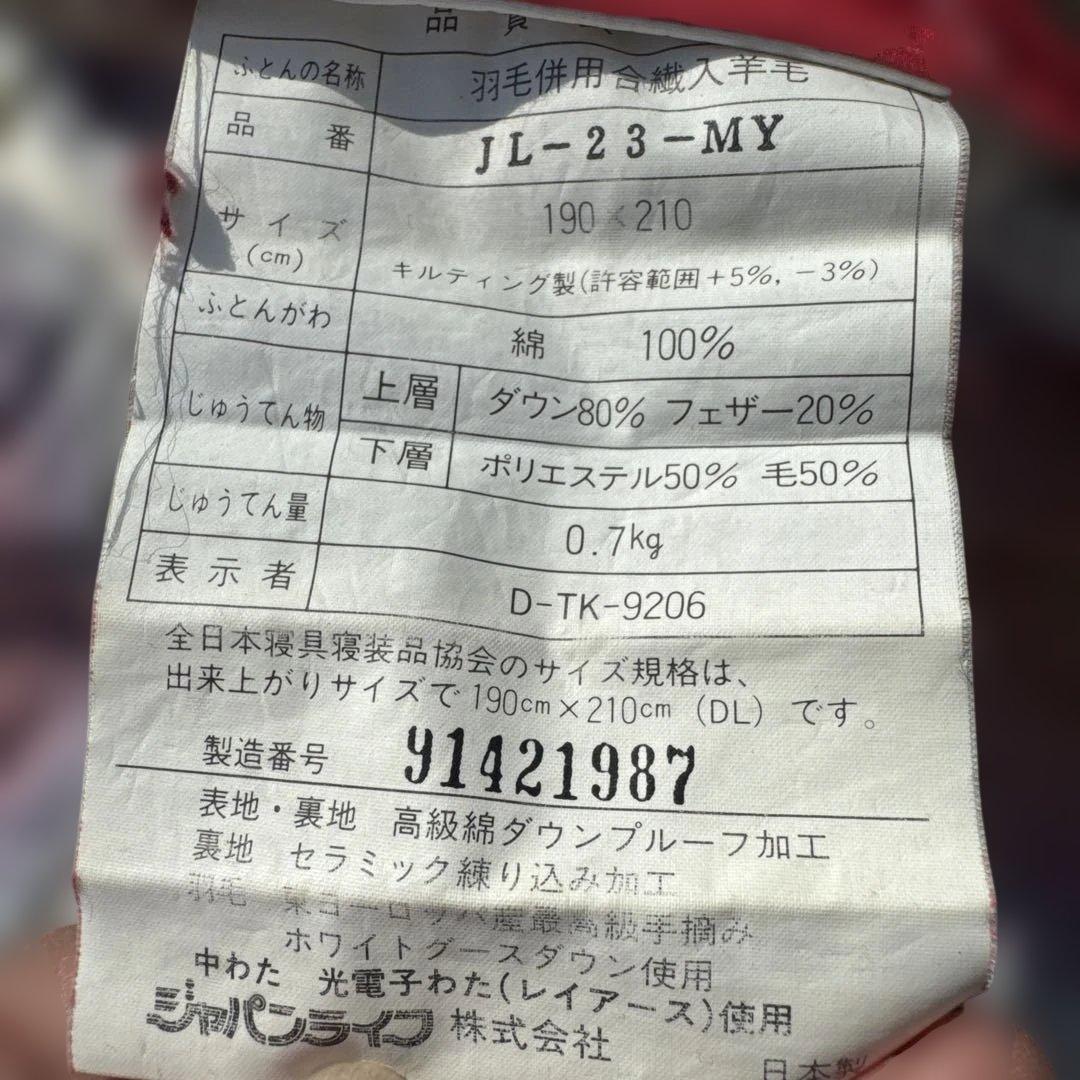 品質
ふとんの名称 羽毛併用合繊入羊毛
品番 JL-23-MY
サイズ(cm) 190×210
キルティング製(許容範囲+5%, -3%)
ふとんがわ 綿 100%
じゅうてん物 上層 ダウン80% フェザー20%
下層 ポリエステル50% 毛50%
じゅうてん量 0.7kg
表示者 D-TK-9206
全日本寝具寝装品協会のサイズ規格は、
出来上がりサイズで190cm×210cm (DL) です。
製造番号 91421987
表地・裏地 高級綿ダウンプルーフ加工
裏地 セラミック練り込み加工
羽毛 東ヨーロッパ産最高級手摘み
ホワイトグースダウン使用
中わた 光電子わた(レイアース)使用
ジャパンライフ株式会社
日本製